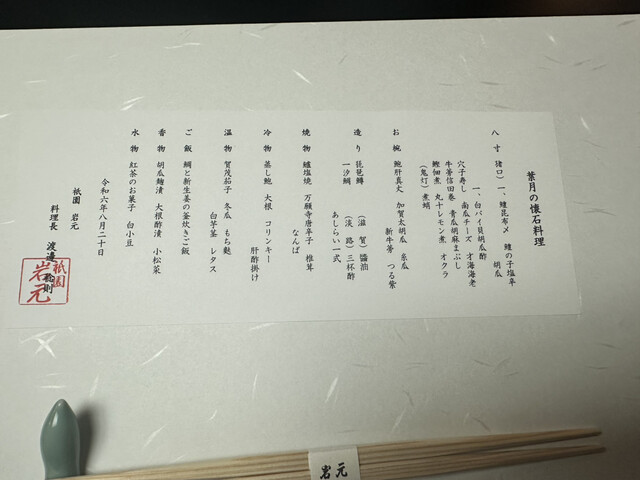 葉月の懐石料理
八寸 猪口）一、鱧昆布〆 鱧の子塩辛
胡瓜
一、白バイ貝胡瓜酢
穴子寿し 南瓜チーズ 才海海老
牛蒡信田巻 青瓜胡麻まぶし
鰹佃煮 丸十レモン煮 オクラ
（鬼灯）煮蛸
お椀 鮑肝真丈 加賀太胡瓜 糸瓜
新牛蒡 つる紫
造り 琵琶鱒 （滋賀）醤油
一汐鯛 （淡路）三杯酢
あしらい一式
焼物 鱸塩焼 万願寺唐辛子 椎茸
なんば
冷物 蒸し鮑 大根 コリンキー
肝酢掛け
温物 賀茂茄子 冬瓜 もち麩
白芋茎 レタス
ご飯 鯛と新生姜の釜炊きご飯
香物 胡瓜麹漬 大根酢漬 小松菜
水物 紅茶のお菓子 白小豆
令和六年八月二十日
祇園 岩元
料理長 渡邊
祇園
岩元
岩元